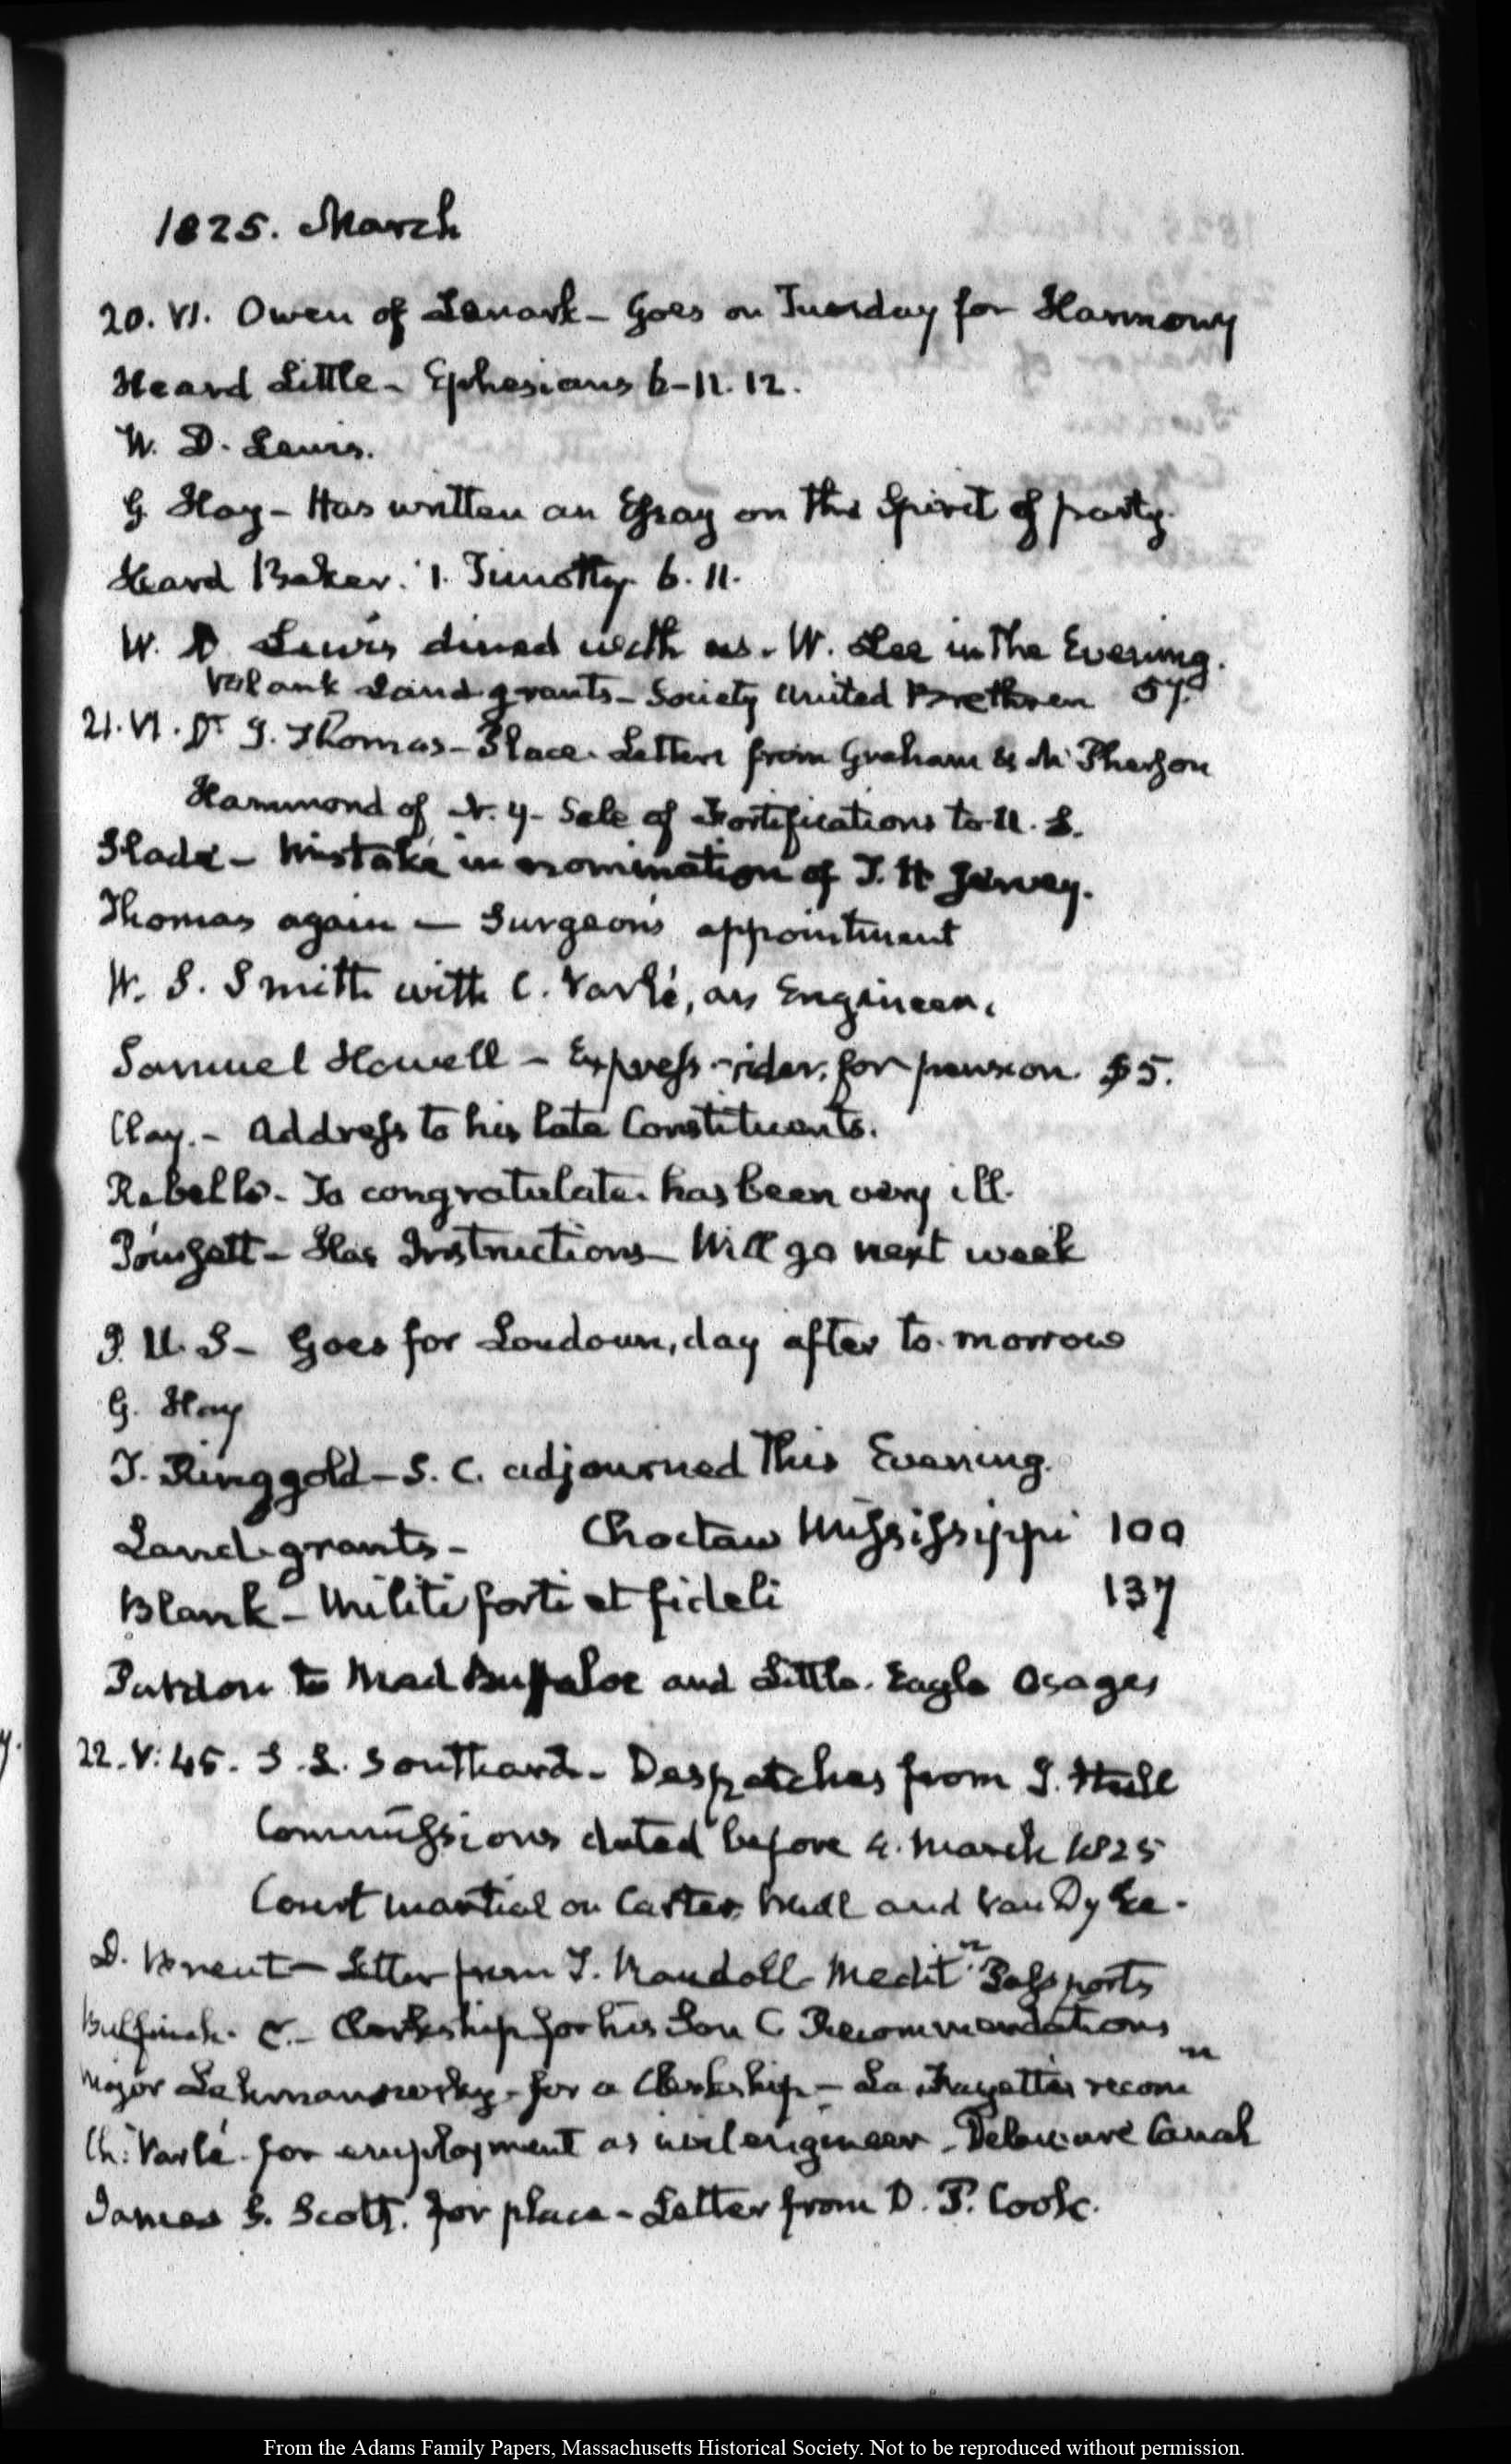 1825. March
20. VI. Owen of Lanark – Goes on Tuesday for Harmony
Heard Little – Ephesians 6–11. 12.
W. D. Lewis.
G Hay – Has written an Essay on the Spirit of party.
Heard Baker. 1. Timothy 6. 11.
W. D Lewis dined with us. W. Lee in the Evening.
Blank Land grants – Society United Brethren 57.
21. VI. Dr J. Thomas – Place. Letters from Graham & McPherson
Hammond of N. Y – Sale of Fortifications to U. S.
Slade – Mistake in nomination of J. H
Thomas again – Surgeon's appointment
W. S. Smith with C. Varlé, as Engineer.
Samuel Howell – Express-rider, for pension. $5.
Clay. – Address to his late Constituents.
Rebello – To congratulate. has been very ill.
Poinsett – Has Instructions – Will go next week
P. U. S – Goes for Loudoun, day after to-morrow
G. Hay
T. Ringgold – S. C. adjourned this Evening.
Land grants – Choctaw Mississippi 100
Blank – Militi forti et fideli 137
Pardon to Mad Buffaloe and Little Eagle Osages
22. V: 45. S. L. Southard – Despatches from I. Hull
Commissions dated before 4. March 1825
Court martial on Carter, and Van Dyke.
D. Brent – Letter from T. Randall Meditn Passports
Bulfinch. C. – Clerkship for his Son C Recommendations
Major Lehmanowsky – for a Clerkship – La Fayette's recomn
Ch: Varlé. for employment as civil engineer – Delaware Canal
James S. Scott. for place – Letter from D. P. Cook.
From the Adams Family Papers, Massachusetts Historical Society. Not to be reproduced without permission.